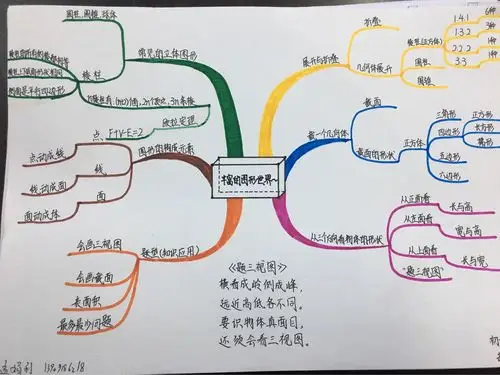 丰富的图形世界~
常见的立体图形
圆柱,圆锥,球体
棱柱
欧拉定理
F+V-E=2
图形的构成元素
点
点动成线
线
线动成面
面
面动成体
题型(知识应用)
会画三视图
会画截面
表面积
最多最少问题
展开与折叠
折叠
几何体展开
棱柱(正方体)
1.4.1
6种
1.3.2
3种
2.2.2
1种
3.3
1种
圆柱
圆锥
截一个几何体
截面
截面的形状
正方体
三角形
四边形
正方形
长方形
梯形
五边形
六边形
从三个方向看物体的形状
从正面看
长与高
从左面看
宽与高
从上面看
长与宽
"题三视图"
《题三视图》
横看成岭侧成峰,
远近高低各不同。
要识物体真面目,
还须会看三视图。
初